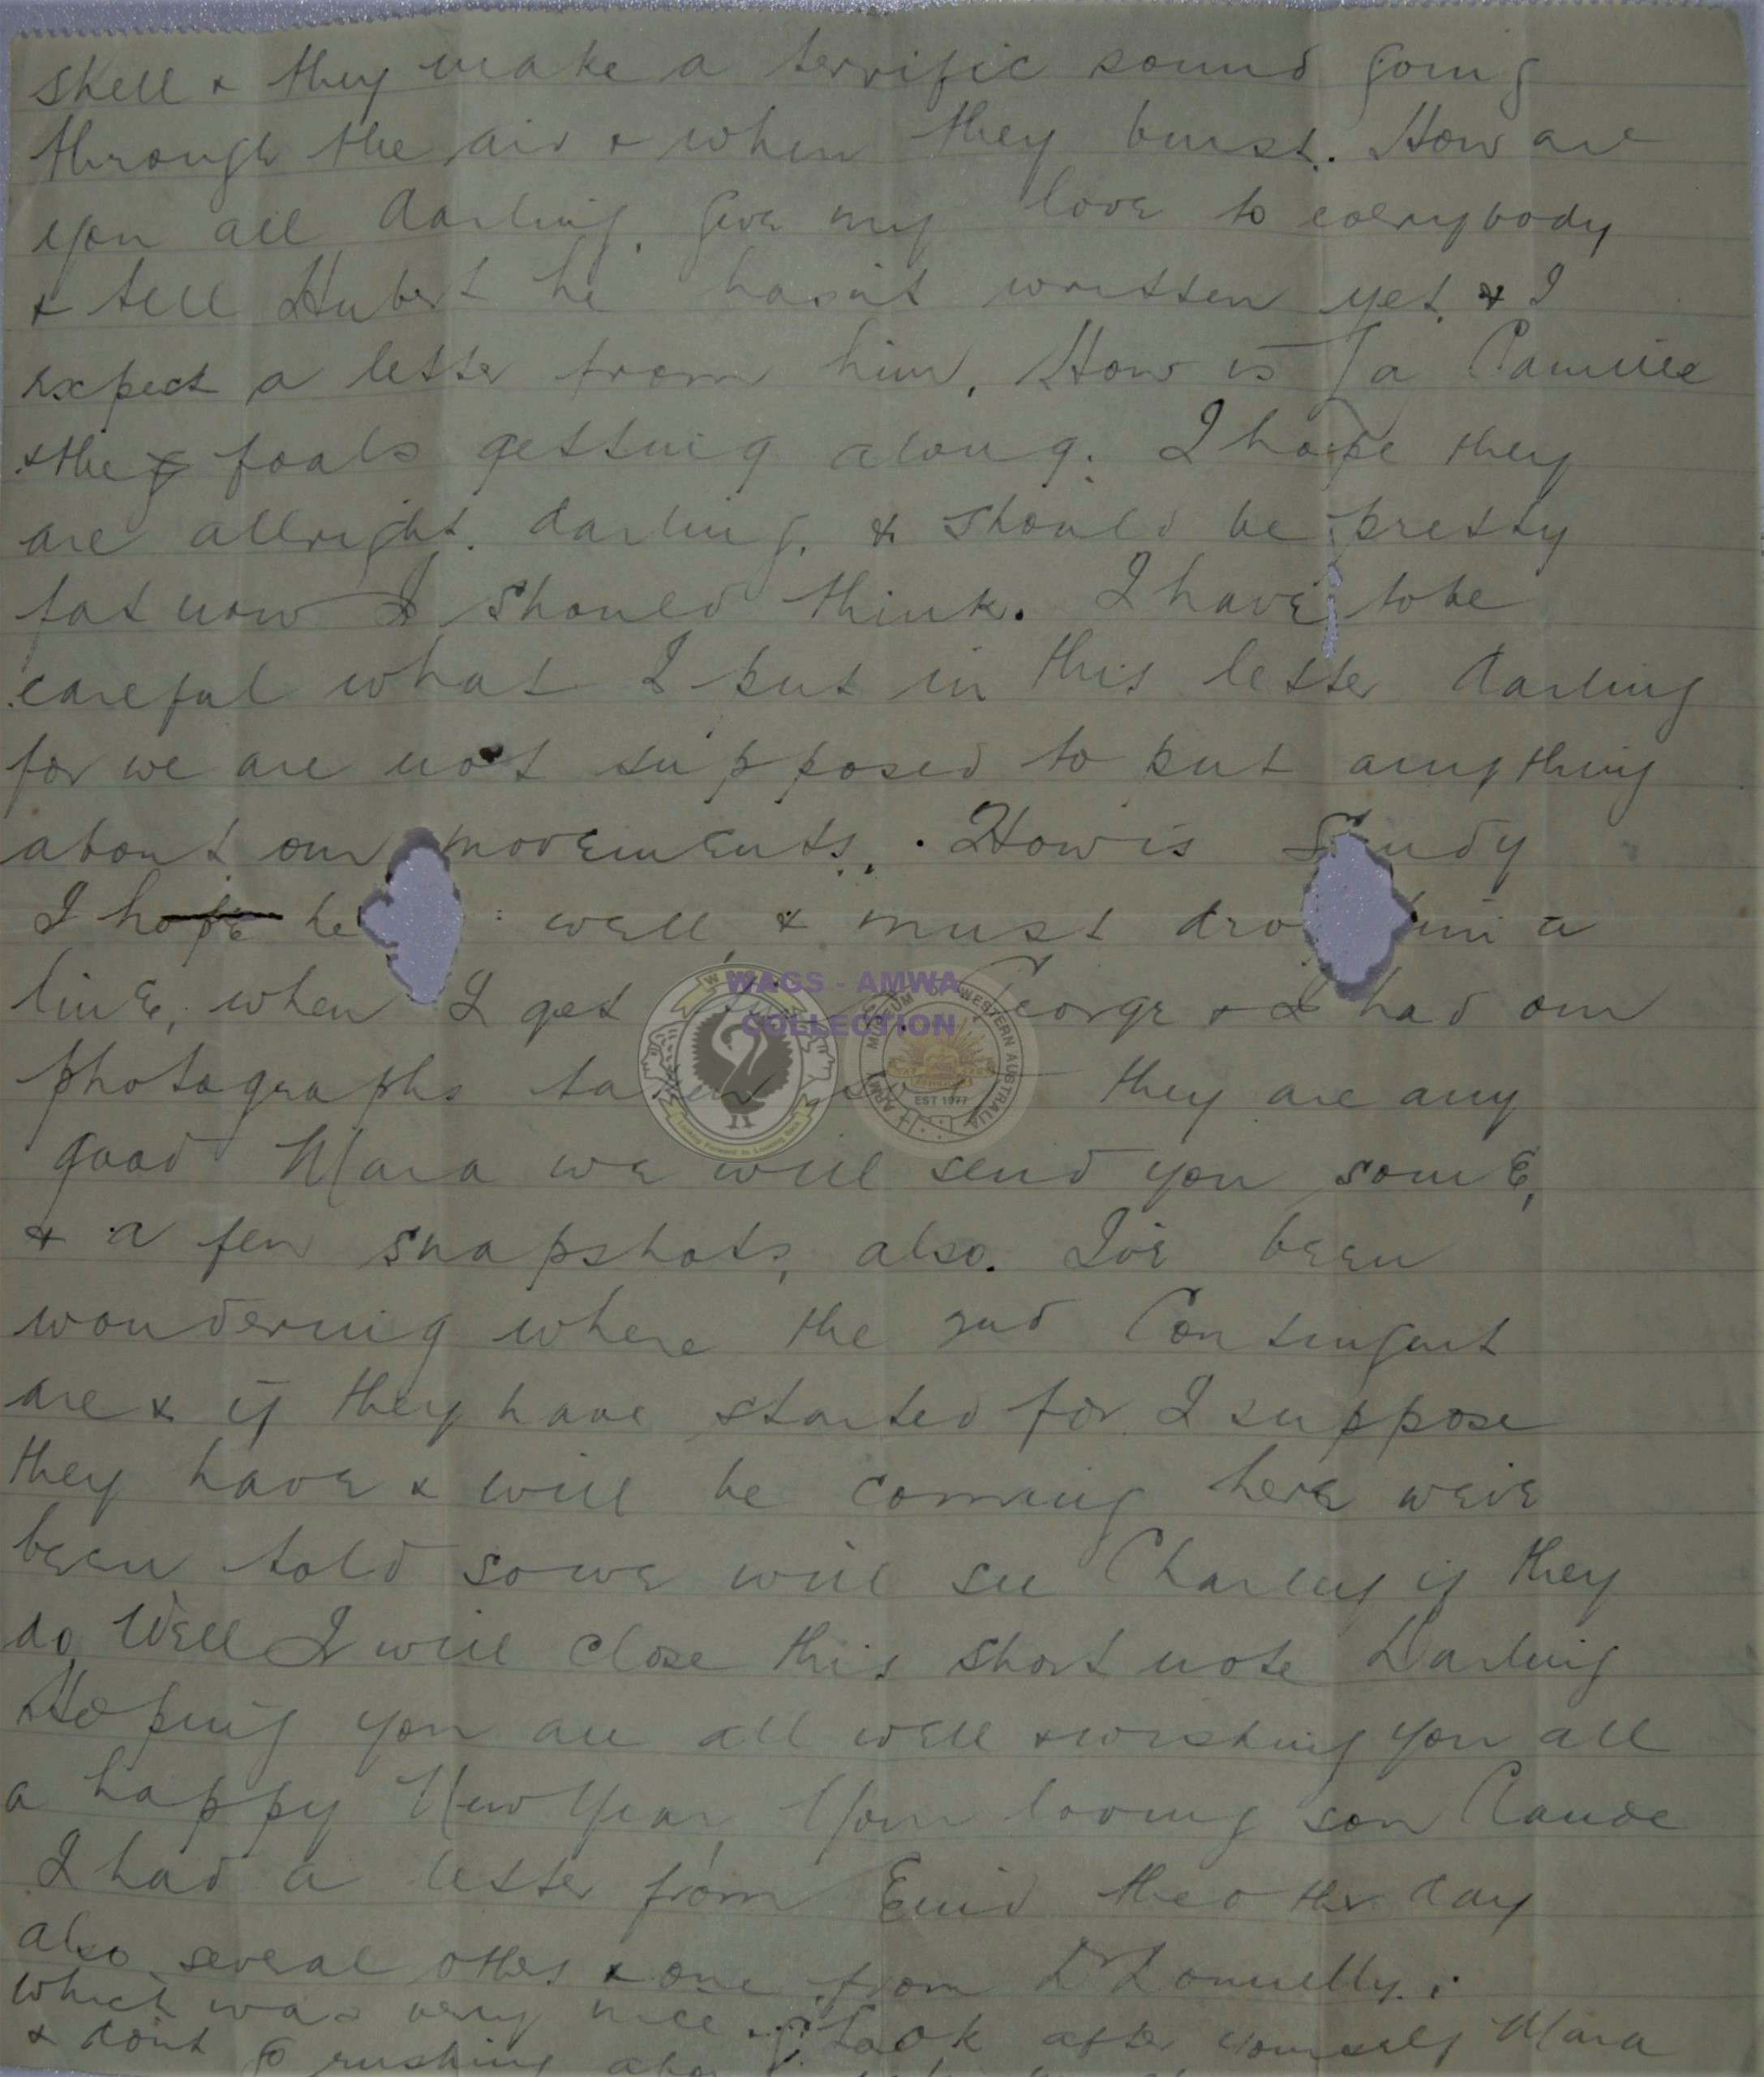 shell & they make a terrific sound going
through the air & when they burst. How are
you all darling. Give my love to everybody
& tell Hubert he hasn't written yet & I
expect a letter from him. How is Ja Camille
& the foals getting along. I hope they
are allright. darling. & should be pretty
fat now I should think. I have to be
careful what I put in this letter darling
for we are not supposed to put anything
about our movements. How is S ndy
I hope he well & must dro him a
line, when I get George & I had our
photographs taken they are any
good Mara we will send you some,
& a few snapshots, also. I've been
wondering where the 2nd Contingent
are & if they have started for I suppose
they have & will be coming here we've
been told so we will see Charley if they
do. Well I will close this short note Darling
Hoping you are all well & wishing you all
a happy New Year, Your loving son Claude
I had a letter from Enid the other day
also several others & one from D Donnelly.
which was very nice. Look after yourself Mara
& don't go rushing
WAGS - AMWA
COLLECTION
WESTERN AUSTRALIA
EST 1977